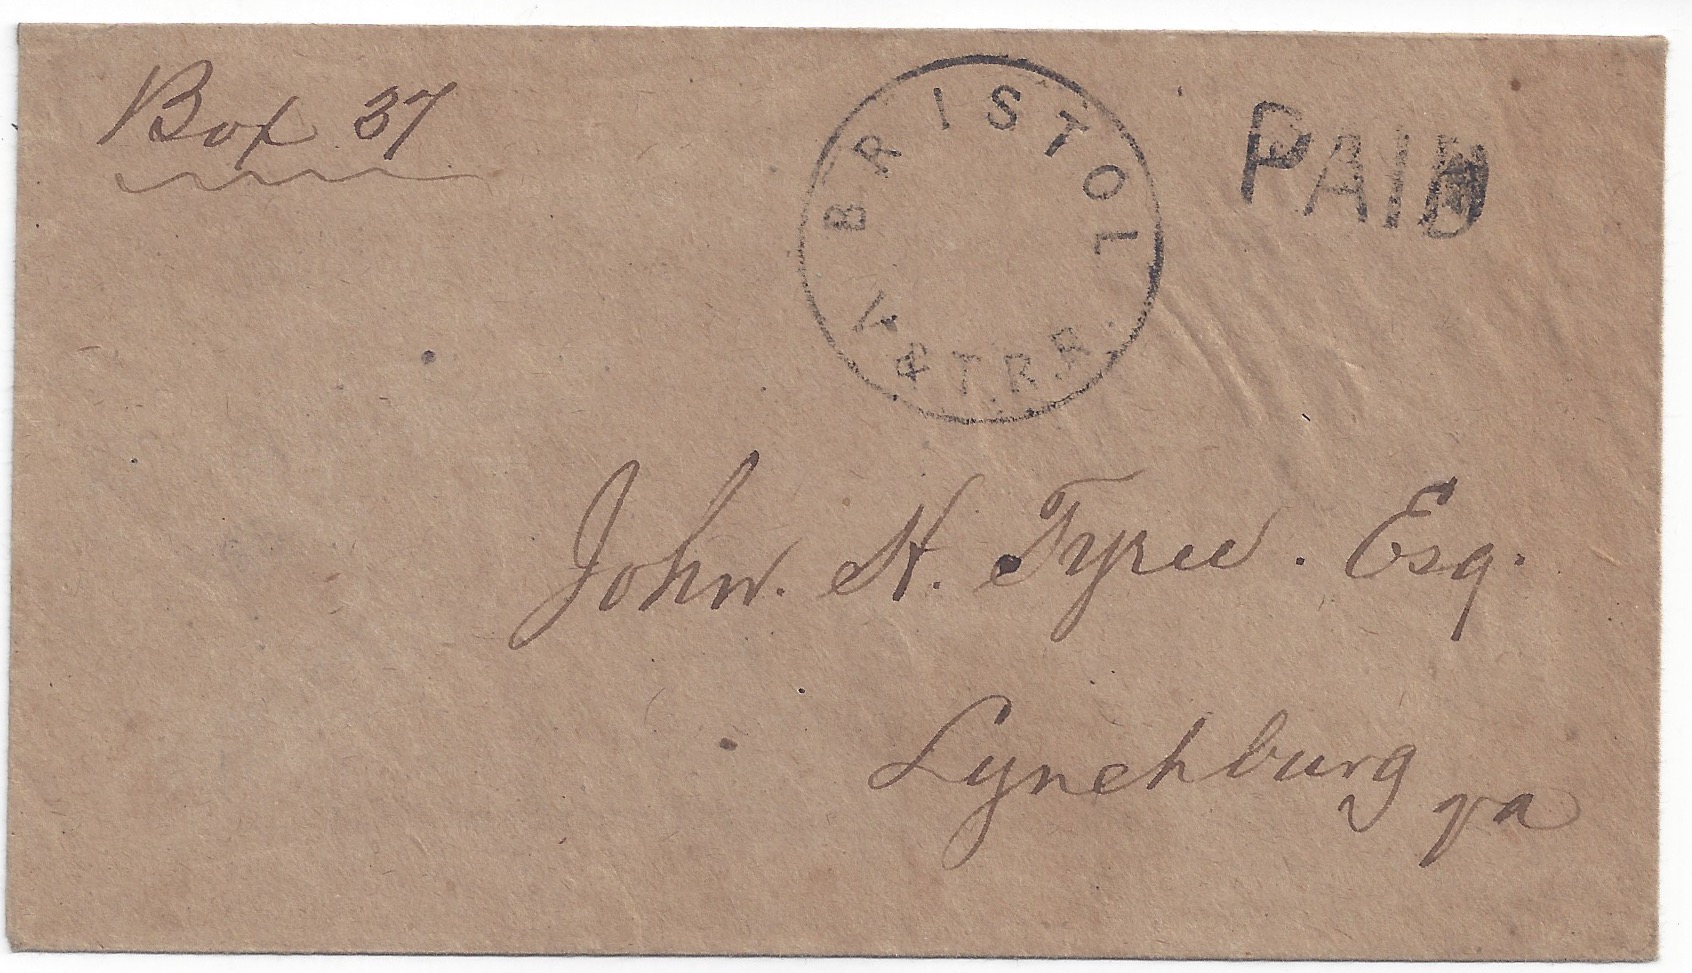 Box 37
BRISTOL
V & T. R. R.
PAID
John. H. Tyree. Esq.
Lynchburg
Va